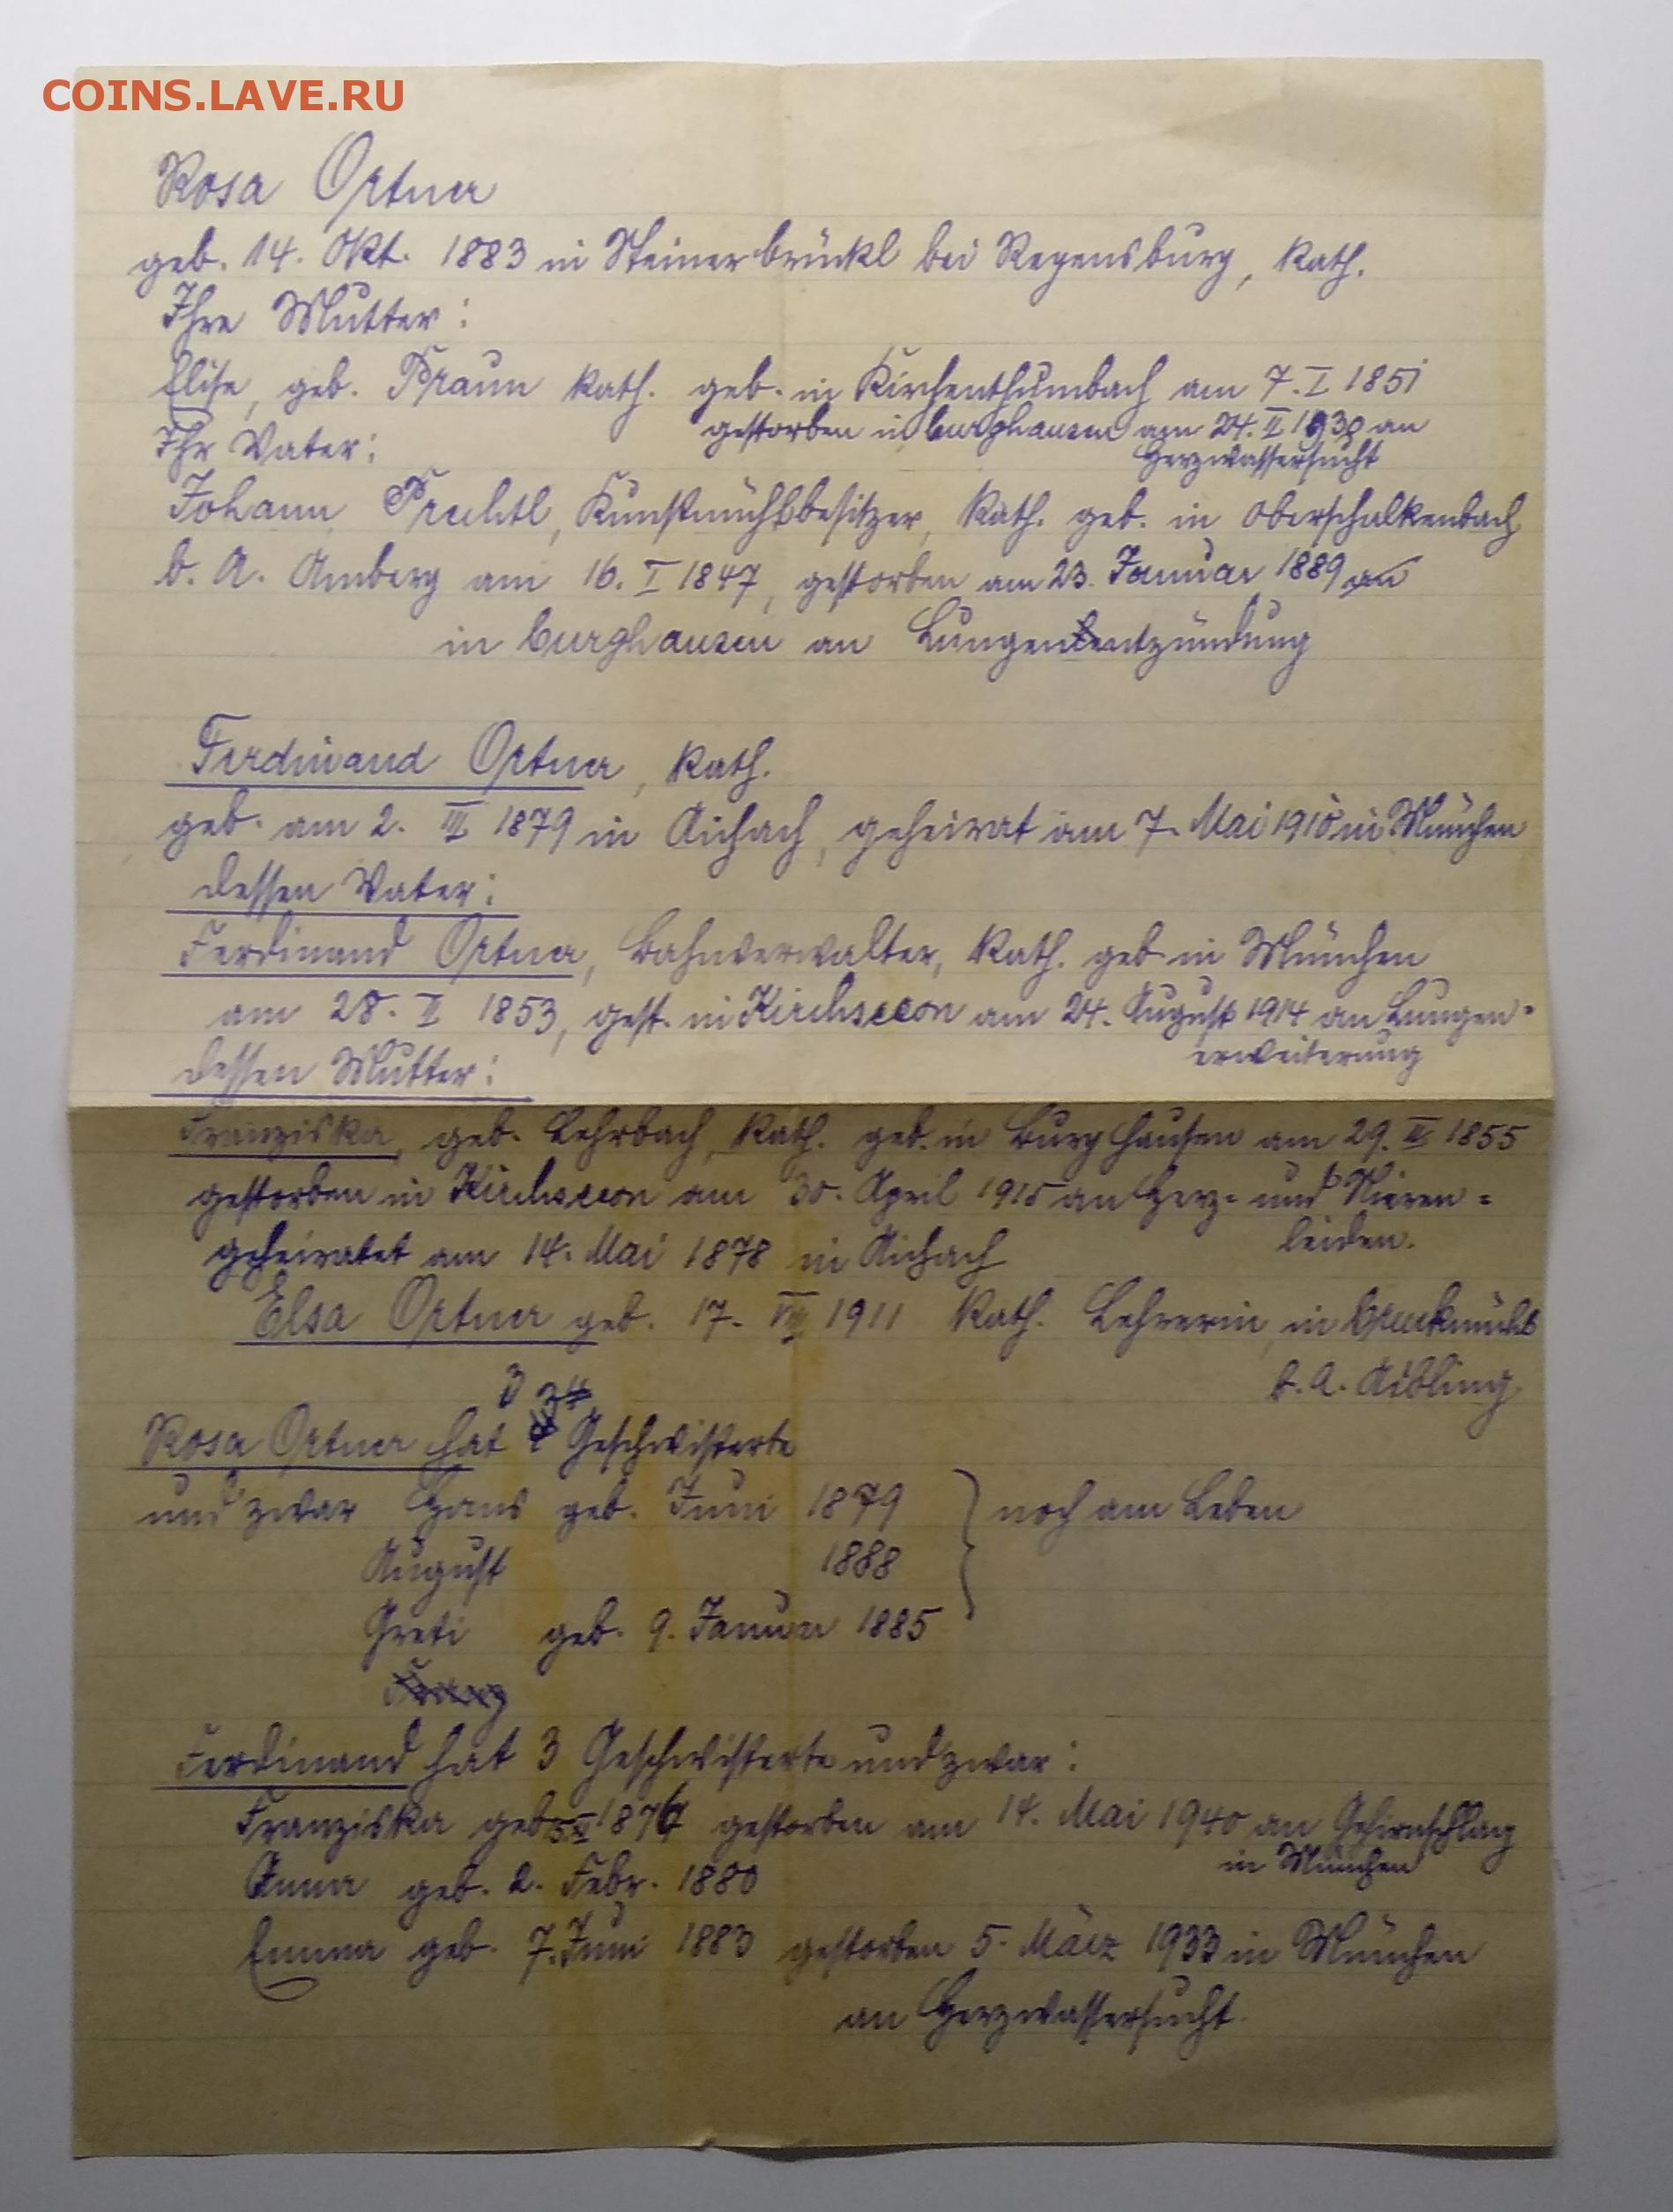 COINS.LAVE.RU
Rosa Ortner
geb. 14. Okt. 1883 in Steinerbrückl bei Regensburg, kath.
Ihre Mutter:
Elise, geb. Praun kath. geb. in Kirchenthumbach am 7. I 1851
gestorben in Burghausen am 24. II 1930 an
Ihr Vater:
Herzwassersucht
Johann Prechtl, Kunstmühlbesitzer, kath. geb. in Oberschalkenbach
b. A. Amberg am 16. I 1847, gestorben am 23. Januar 1889 an
in Burghausen an Lungenentzündung
Ferdinand Ortner, kath.
geb. am 2. III 1879 in Aichach, geheirat am 7. Mai 1910 in München
dessen Vater:
Ferdinand Ortner, Bahnverwalter, kath. geb. in München
am 28. II 1853, gest. in Kirchseeon am 24. August 1914 an Lungen-
erweiterung
dessen Mutter:
Franziska, geb. Lehrbach, kath. geb. in Burghausen am 29. 1855
gestorben in Kirchseeon am 30. April 1915 an Herz- und Nieren-
leiden.
geheiratet am 14. Mai 1878 in Aichach
Elsa Ortner geb. 17. 1911 kath. Lehrerin, in Bruckmühl
b. A. Aibling
3
Rosa Ortner hat Geschwisterte
und zwar Hans geb. Juni 1879 } noch am Leben
August 1888
Greti geb. 9. Januar 1885
Franz
Ferdinand hat 3 Geschwisterte und zwar:
Franziska geb. gestorben am 14. Mai 1940 an Gehirnschlag
in München
Anna geb. 2. Febr. 1880
Emma geb. 7. Juni 1883 gestorben 5. März 1933 in München
an Herzwassersucht.